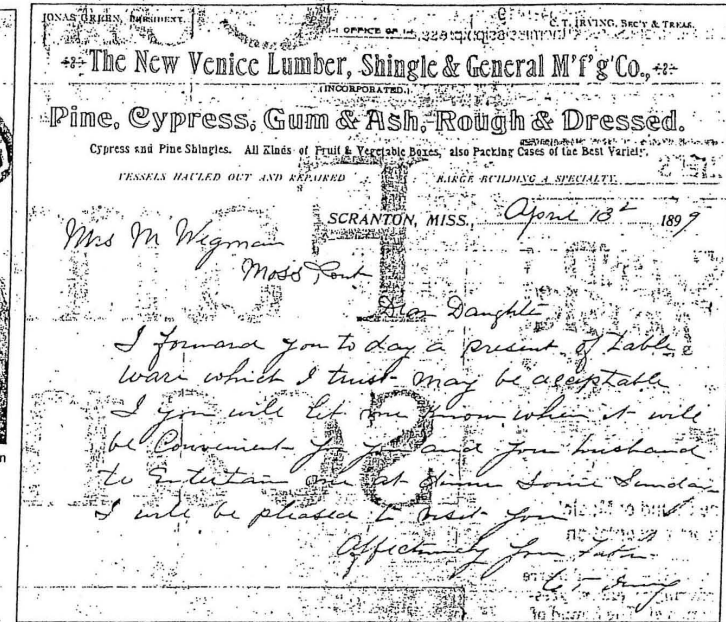 JONAS GREEN, PRESIDENT.
OFFICE OF
C. T. IRVING, SEC'Y & TREAS.
The New Venice Lumber, Shingle & General M'f'g'Co.,
(INCORPORATED.)
Pine, Cypress, Gum & Ash, Rough & Dressed.
Cypress and Pine Shingles. All Kinds of Fruit & Vegetable Boxes, also Packing Cases of the Best Variety.
VESSELS HAULED OUT AND REPAIRED
BARGE BUILDING A SPECIALTY.
SCRANTON, MISS., April 13 1899
Mrs M Wegman
Moss Point
Dear Daughter
I forward you to day a present of table
ware which I trust may be acceptable
I you will let me know when it will
be Convenient for you and your husband
to Entertain me at dinner some Sunday
I will be pleased to visit you
Affectionately your Father
Irving